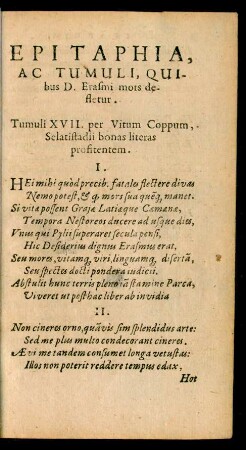 EPITAPHIA,
AC TUMULI, QUI-
bus D. Erasmi mors de-
fletur.
Tumuli XVII. per Vitum Coppum,
Selastadii bonas literas
profitentem.
I.
HEi mihi quòd precib. fatales flectere divas
Nemo potest, & q. mors sua quēq; manet.
Si vita possent Grajæ Latiæque Camœnæ,
Tempora Nestoreos ducere ad usque dies,
Vnus qui Pylii superaret secula pensi,
Hic Desiderius dignus Erasmus erat.
Seu mores, vitamq; viri, linguamq; disertā,
Seu spectes docti pondera iudicii.
Abstulit hunc terris pleno iā stamine Parca,
Viveret ut posthac liber ab invidia
II.
Non cineres orno, quāvis sim splendidus arte:
Sed me plus multo condecorant cineres.
Ævi me tandem consumet longa vetustas:
Illos non poterit reddere tempus edax.
Hot